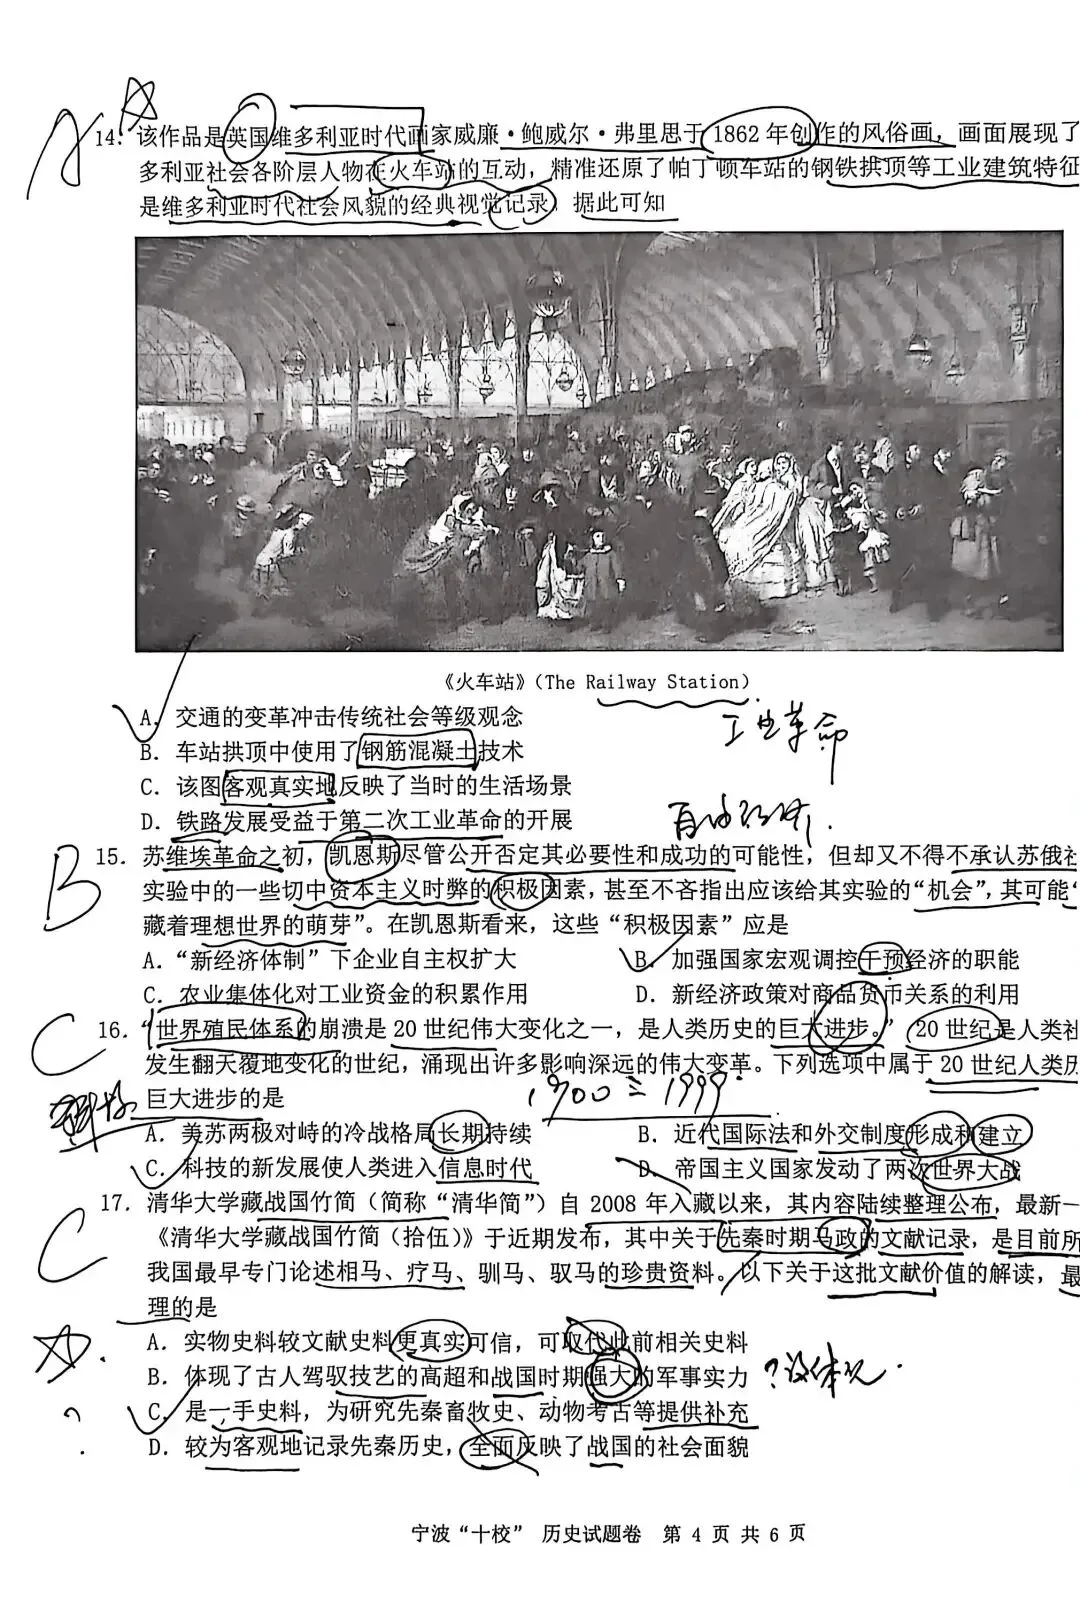 A
14. 该作品是英国维多利亚时代画家威廉·鲍威尔·弗里思于 1862 年创作的风俗画，画面展现了
多利亚社会各阶层人物在火车站的互动，精准还原了帕丁顿车站的钢铁拱顶等工业建筑特征
是维多利亚时代社会风貌的经典视觉记录。据此可知
《火车站》（The Railway Station）
A. 交通的变革冲击传统社会等级观念
工业革命
B. 车站拱顶中使用了钢筋混凝土技术
C. 该图客观真实地反映了当时的生活场景
D. 铁路发展受益于第二次工业革命的开展
B
15. 苏维埃革命之初，凯恩斯尽管公开否定其必要性和成功的可能性，但却又不得不承认苏俄社
实验中的一些切中资本主义时弊的积极因素，甚至不吝指出应该给其实验的“机会”，其可能“
藏着理想世界的萌芽”。在凯恩斯看来，这些“积极因素”应是
A. “新经济体制”下企业自主权扩大 B. 加强国家宏观调控干预经济的职能
C. 农业集体化对工业资金的积累作用 D. 新经济政策对商品货币关系的利用
C
16. “世界殖民体系的崩溃是 20 世纪伟大变化之一，是人类历史的巨大进步。” 20 世纪是人类社
发生翻天覆地变化的世纪，涌现出许多影响深远的伟大变革。下列选项中属于 20 世纪人类历
巨大进步的是
1900 1999
A. 美苏两极对峙的冷战格局长期持续 B. 近代国际法和外交制度形成和建立
C. 科技的新发展使人类进入信息时代 D. 帝国主义国家发动了两次世界大战
C
17. 清华大学藏战国竹简（简称“清华简”）自 2008 年入藏以来，其内容陆续整理公布，最新一
《清华大学藏战国竹简（拾伍）》于近期发布，其中关于先秦时期马政的文献记录，是目前所
我国最早专门论述相马、疗马、驯马、驭马的珍贵资料。以下关于这批文献价值的解读，最
理的是
A. 实物史料较文献史料更真实可信，可取代此前相关史料
B. 体现了古人驾驭技艺的高超和战国时期强大的军事实力
?没体现.
C. 是一手史料，为研究先秦畜牧史、动物考古等提供补充
D. 较为客观地记录先秦历史，全面反映了战国的社会面貌
宁波“十校” 历史试题卷 第 4 页 共 6 页